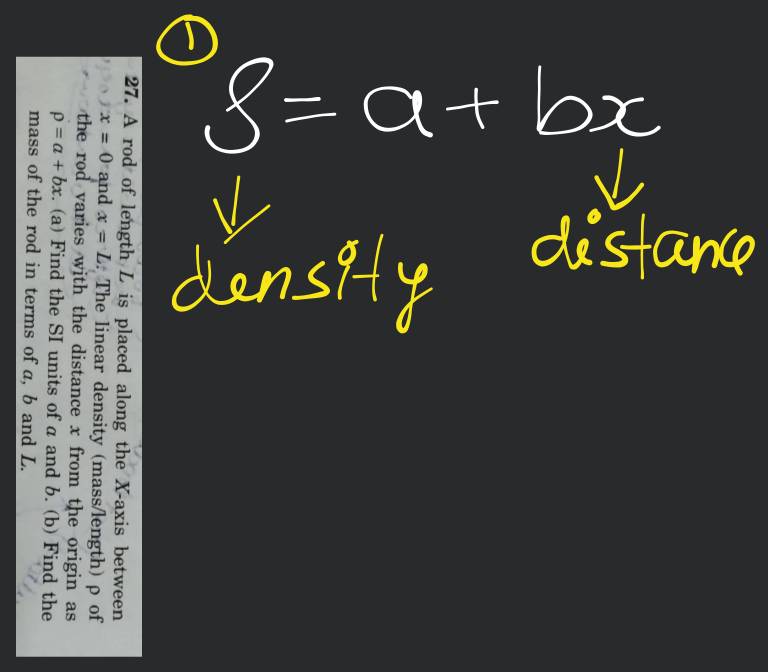 ①
ρ = a + bx
density
distance
27. A rod of length L is placed along the X-axis between
x = 0 and x = L. The linear density (mass/length) ρ of
the rod varies with the distance x from the origin as
ρ = a + bx. (a) Find the SI units of a and b. (b) Find the
mass of the rod in terms of a, b and L.